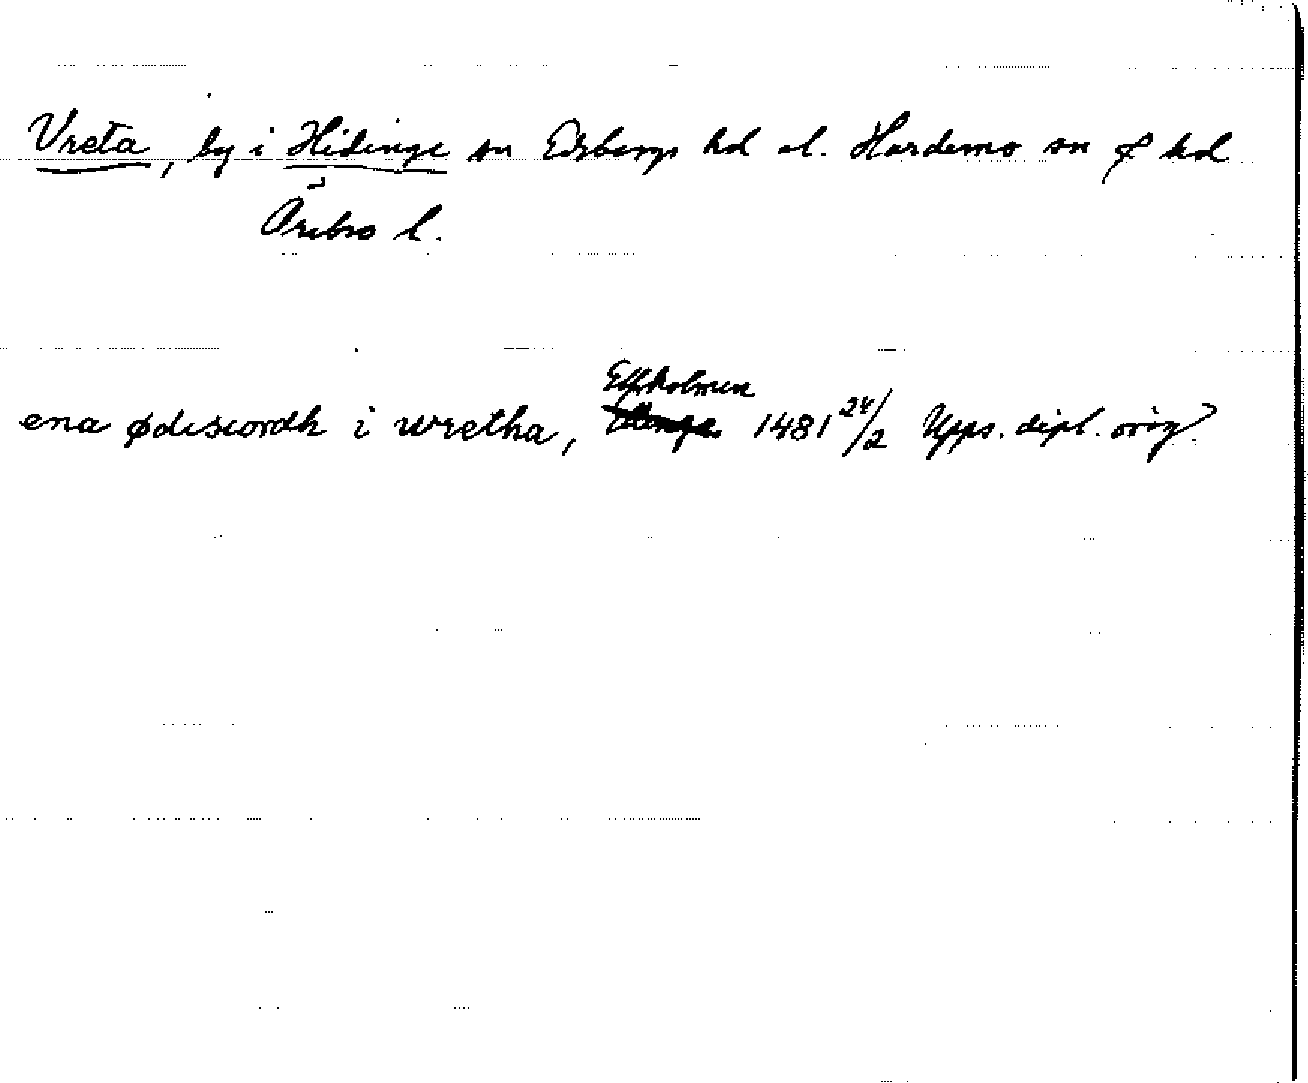 Vreta, by i Hidinge sn Edsbergs hd el. Hardemo sn o hd
Örebro l.
Elfkolmen
ena ødesiordh i wretha, 1481 24/2 Upps. dipl. orig.